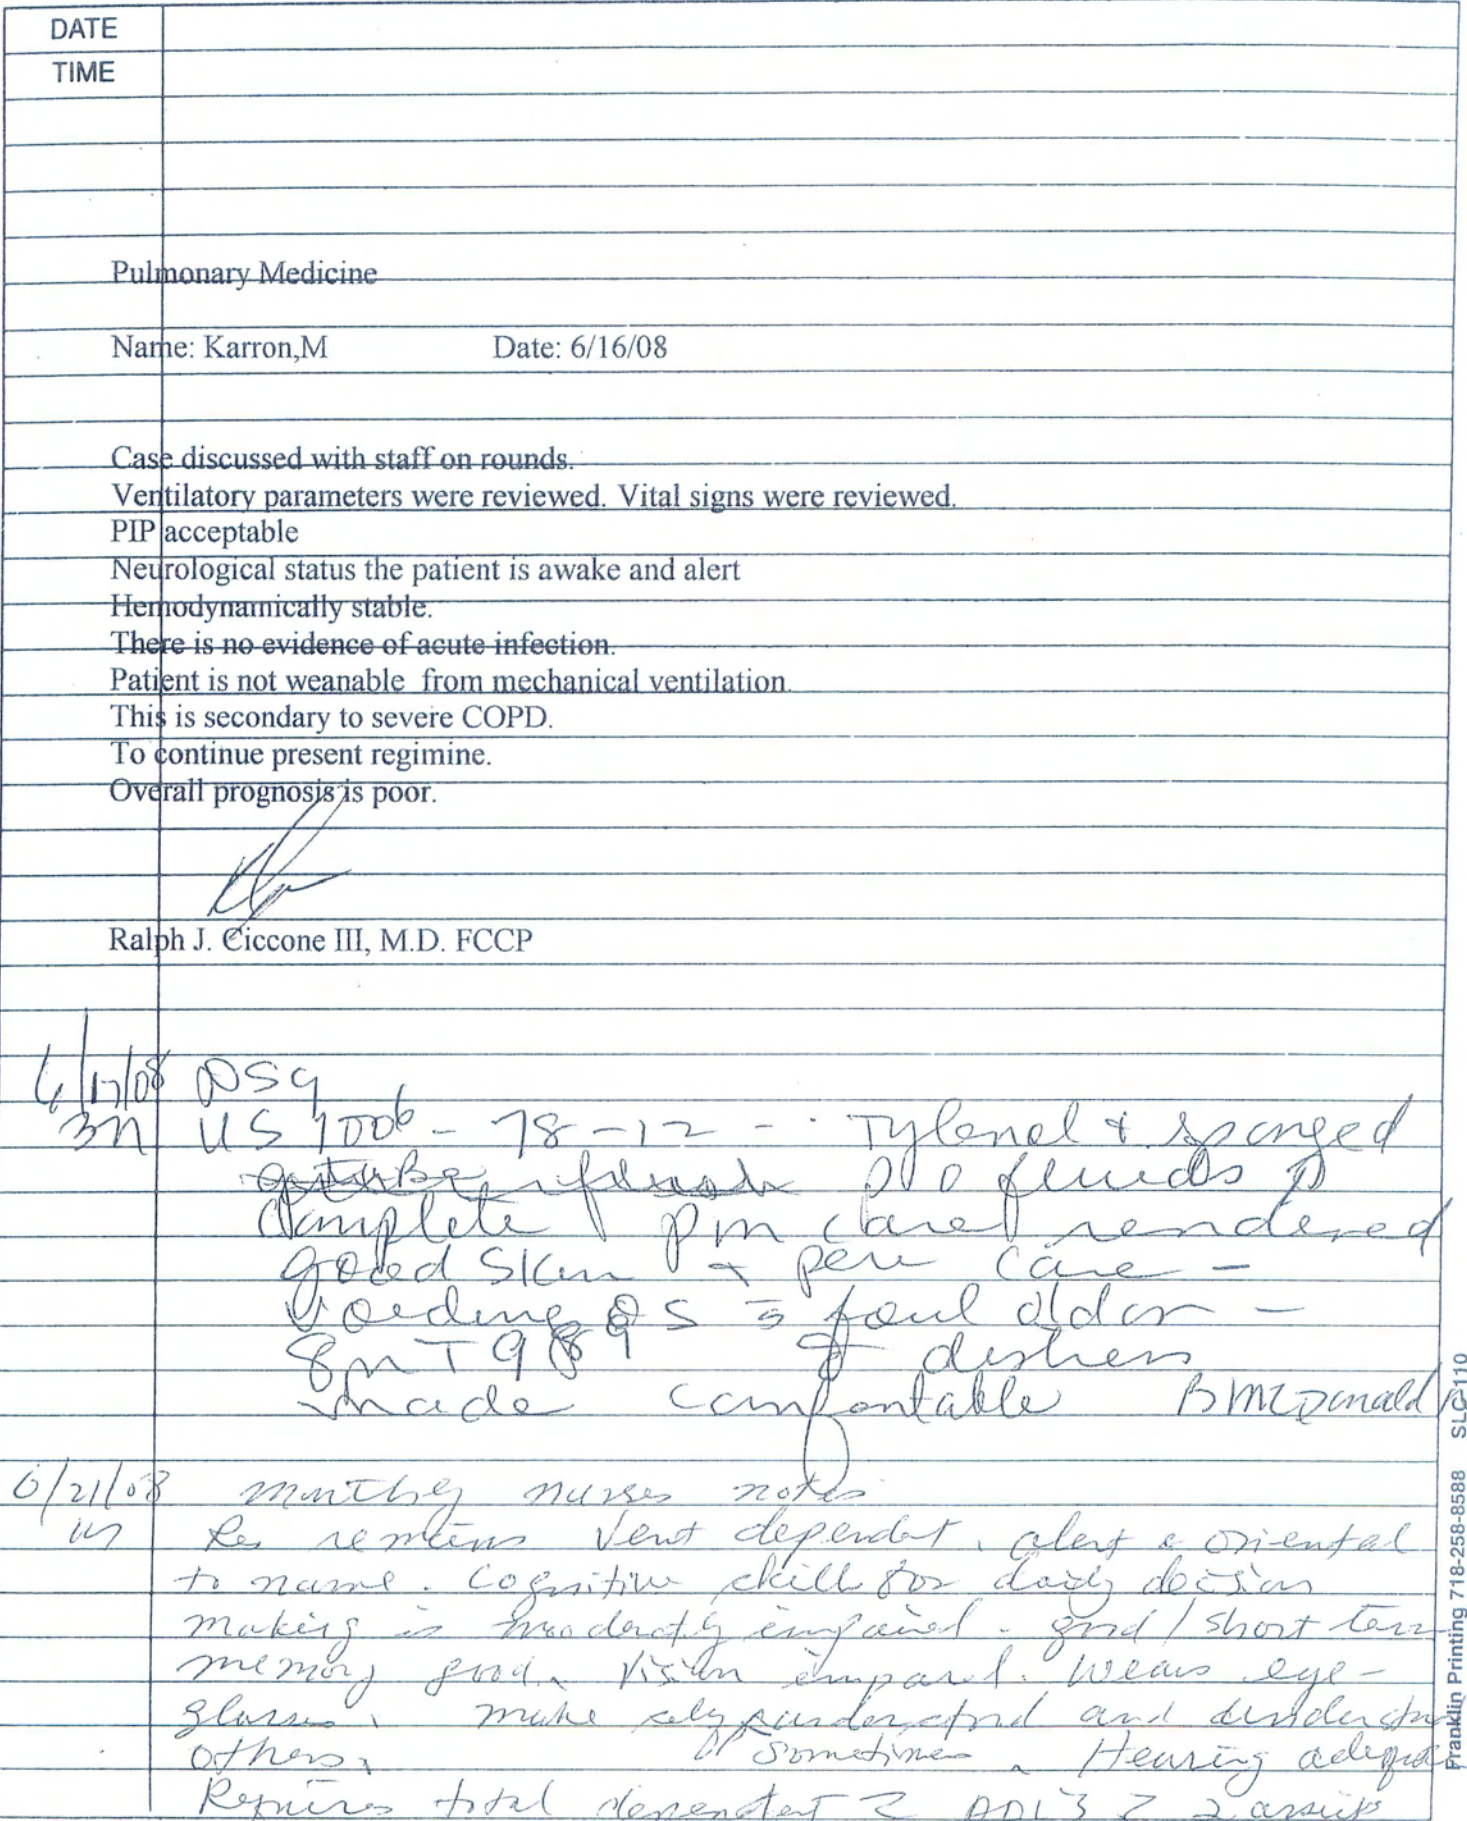 DATE
TIME
Pulmonary Medicine
Name: Karron,M Date: 6/16/08
Case discussed with staff on rounds.
Ventilatory parameters were reviewed. Vital signs were reviewed.
PIP acceptable
Neurological status the patient is awake and alert
Hemodynamically stable.
There is no evidence of acute infection.
Patient is not weanable from mechanical ventilation.
This is secondary to severe COPD.
To continue present regimine.
Overall prognosis is poor.
Ralph J. Ciccone III, M.D. FCCP
6/17/08 NSg
- 78 - 12 - Tylenol + sponged
fluids
complete pm care rendered
good skin + peri care -
voiding QS foul odor -
T 98 distress
made comfortable B McDonald
6/21/08 monthly nurses notes
Res remains vent dependent, alert & oriental
to name. Cognitive skill for daily decision
making is moderately impaired - good / short term
memory good. Vision impared. Wears eye-
glasses. make self understood and understand
others, sometimes. Hearing adequate
Requires total dependent ADL'S 2 assist
Franklin Printing 718-258-8588 SLC-110